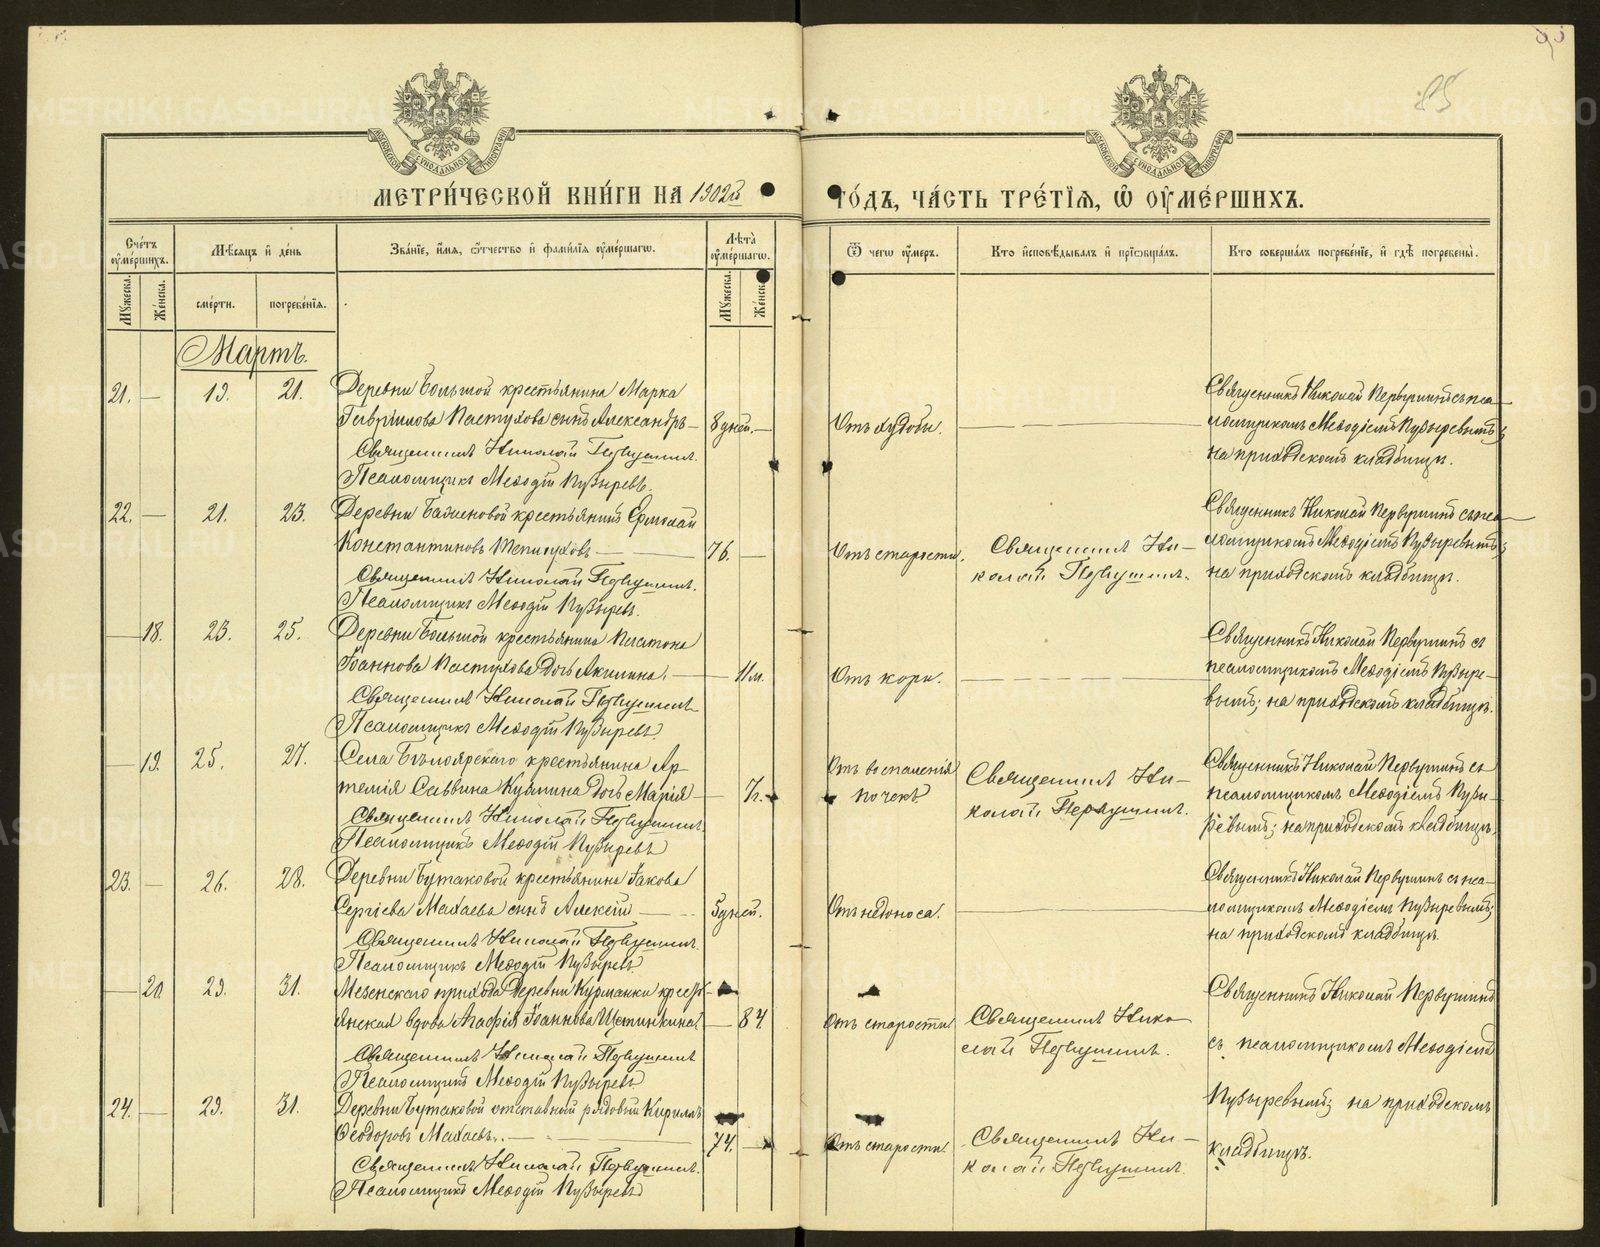 МЕТРИ́ЧЕСКОЙ КНИ́ГИ НА 1902й
ГО́ДЪ, ЧА́СТЬ ТРЕ́ТІЯ, Ѿ ОУ҆МЕ́РШИХЪ.
МОСКОВСКОЙ СѴНОДАЛЬНОЙ ТИПОГРАФІИ
МОСКОВСКОЙ СѴНОДАЛЬНОЙ ТИПОГРАФІИ
85
Сче́тъ оумéршихъ.
Мужеска.
Же́нска.
Мѣсяцъ и де́нь
сме́рти.
погребе́нія.
Зва́ніе, и́мя, о́тчество и фами́лія оуме́ршагѡ.
Лѣта̀ оуме́ршагѡ.
Мужеска.
Же́нска.
Ѿ чегѡ оу́меръ.
Кто исповѣ́дывалъ и пріѡбща́лъ.
Кто соверша́лъ погребе́ніе, и гдѣ погребены̀.
Мартъ.
21. — 19. 21.
Деревни Большой крестьянина Марка
Гавріилова Пастухова сынъ Александръ — 8 дней. —
Священникъ Николай Первушинъ.
Псаломщикъ Меѳодій Пузыревъ.
Отъ худобы.
Священникъ Николай Первушинъ съ пса-
ломщикомъ Меѳодіемъ Пузыревымъ;
на приходскомъ кладбищѣ.
22. — 21. 23.
Деревни Баженовой крестьянинъ Ермолай
Константиновъ — 76. —
Священникъ Николай Первушинъ.
Псаломщикъ Меѳодій Пузыревъ.
Отъ старости.
Священникъ Ни-
колай Первушинъ.
Священникъ Николай Первушинъ съ пса-
ломщикомъ Меѳодіемъ Пузыревымъ;
на приходскомъ кладбищѣ.
— 18. 23. 25.
Деревни Большой крестьянина Платона
Іоаннова Пастухова дочь Акилина. — 11 м.
Священникъ Николай Первушинъ.
Псаломщикъ Меѳодій Пузыревъ.
Отъ кори.
Священникъ Николай Первушинъ съ
псаломщикомъ Меѳодіемъ Пузыре-
вымъ; на приходскомъ кладбищѣ.
— 19. 25. 27.
Села Бѣлоярскаго крестьянина Ар-
темія Саввина Кузмина дочь Марія — 7 г.
Священникъ Николай Первушинъ.
Псаломщикъ Меѳодій Пузыревъ
Отъ воспаленія
почекъ.
Священникъ Ни-
колай Первушинъ.
Священникъ Николай Первушинъ съ
псаломщикомъ Меѳодіемъ Пузы-
ревымъ; на приходскомъ кладбищѣ.
23. — 26. 28.
Деревни Бутаковой крестьянина Іакова
Сергіева Махаева сынъ Алексій — 5 дней.
Священникъ Николай Первушинъ.
Псаломщикъ Меѳодій Пузыревъ
Отъ недоноса.
Священникъ Николай Первушинъ съ пса-
ломщикомъ Меѳодіемъ Пузыревымъ;
на приходскомъ кладбищѣ.
— 20. 29. 31.
Мезенскаго прихода деревни Курманки кресть-
янская вдова Агафія Іоаннова Щетинкина. — 84.
Священникъ Николай Первушинъ
Псаломщикъ Меѳодій Пузыревъ
Отъ старости.
Священникъ Нико-
лай Первушинъ.
Священникъ Николай Первушинъ
съ псаломщикомъ Меѳодіемъ
Пузыревымъ; на приходскомъ
кладбищѣ.
24. — 29. 31.
Деревни Бутаковой отставный рядовый Кириллъ
Ѳеодоровъ Махаевъ. — 74. —
Священникъ Николай Первушинъ.
Псаломщикъ Меѳодій Пузыревъ
Отъ старости.
Священникъ Ни-
колай Первушинъ.
METRIKI.GASO-URAL.RU